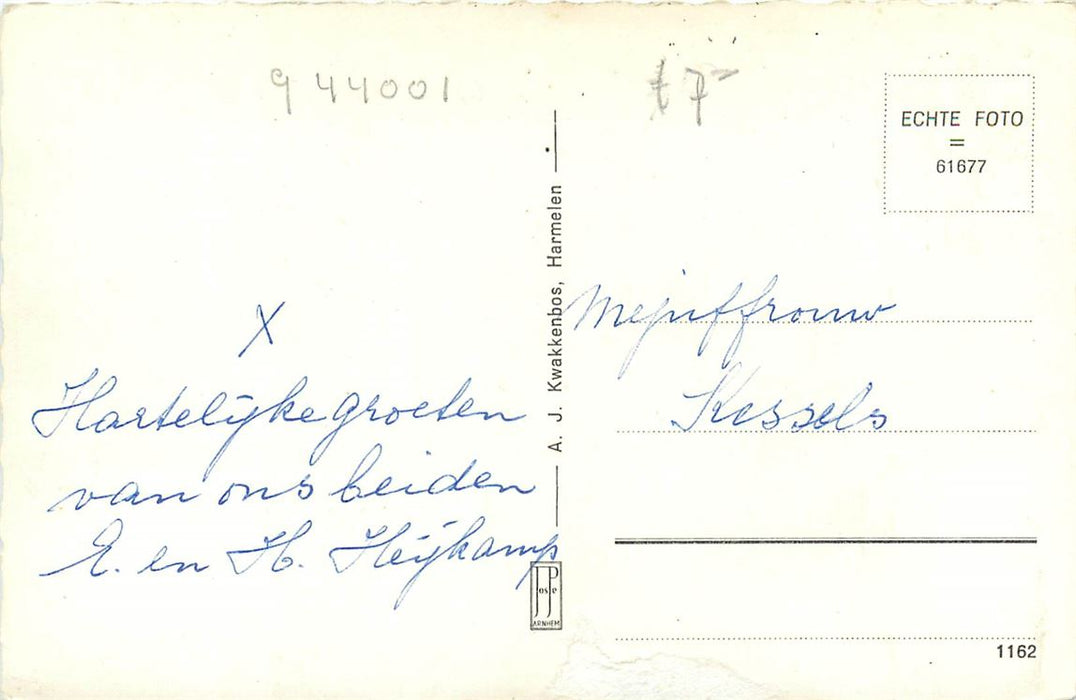 944001
7
ECHTE FOTO
=
61677
X
Hartelijke groeten
van ons beiden
E. en H. Heijkamp
A. J. Kwakkenbos, Harmelen
JosPe
ARNHEM
Mejuffrouw
Kessels
1162